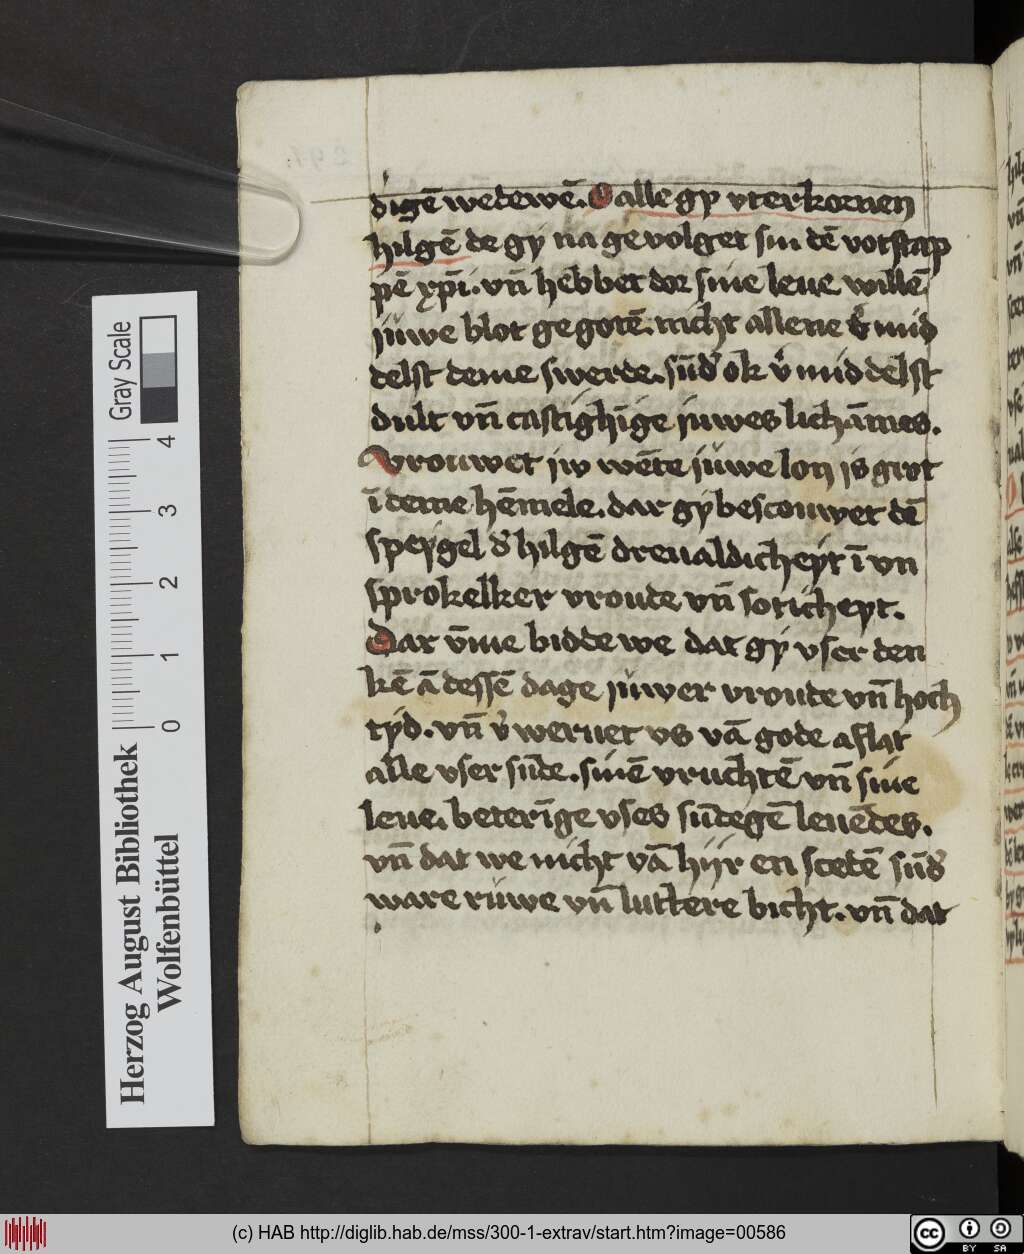 digē wedewē. O alle gy vterkornen
hilgē de gy na gevolget sin dē votstap
pē xp̄i. vn̄ hebbet dor sine leue willē
juwe blot gegotē. nicht allene v̓ mid
delst deme swerde. sūd̓ ok v̓ middelst
dult vn̄ castighīge juwes lichāmes.
Vrouwet jw wēte juwe lon is grot
ī deme hēmele. dar gy bescouwet dē
speygel d̓ hilgē dreualdicheyt ī vn
sprokelker vroude vn̄ soticheyt.
Dar v̄me bidde we dat gy vser den
kē ā dessē dage juwer vroude vn̄ hoch
tyd. vn̄ v̓weruet vs vā gode aflat
alle vser sūde. sinē vruchtē vn̄ sine
leue. beterīge vses sūdegē leuēdes.
vn̄ dat we nicht vā hijr en scedē sūd̓
ware ruwe vn̄ luttere bicht. vn̄ dat
Gray Scale
0 1 2 3 4
Herzog August Bibliothek
Wolfenbüttel
(c) HAB http://diglib.hab.de/mss/300-1-extrav/start.htm?image=00586
cc BY SA